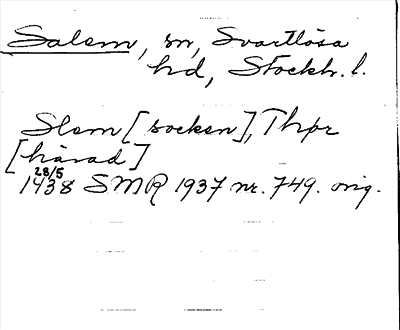 Salem, sn, Svartlösa
hd, Stockh. l.
Slem [socken], Thør
[härad]
28/5
1438 SMR 1937 nr. 749. orig.